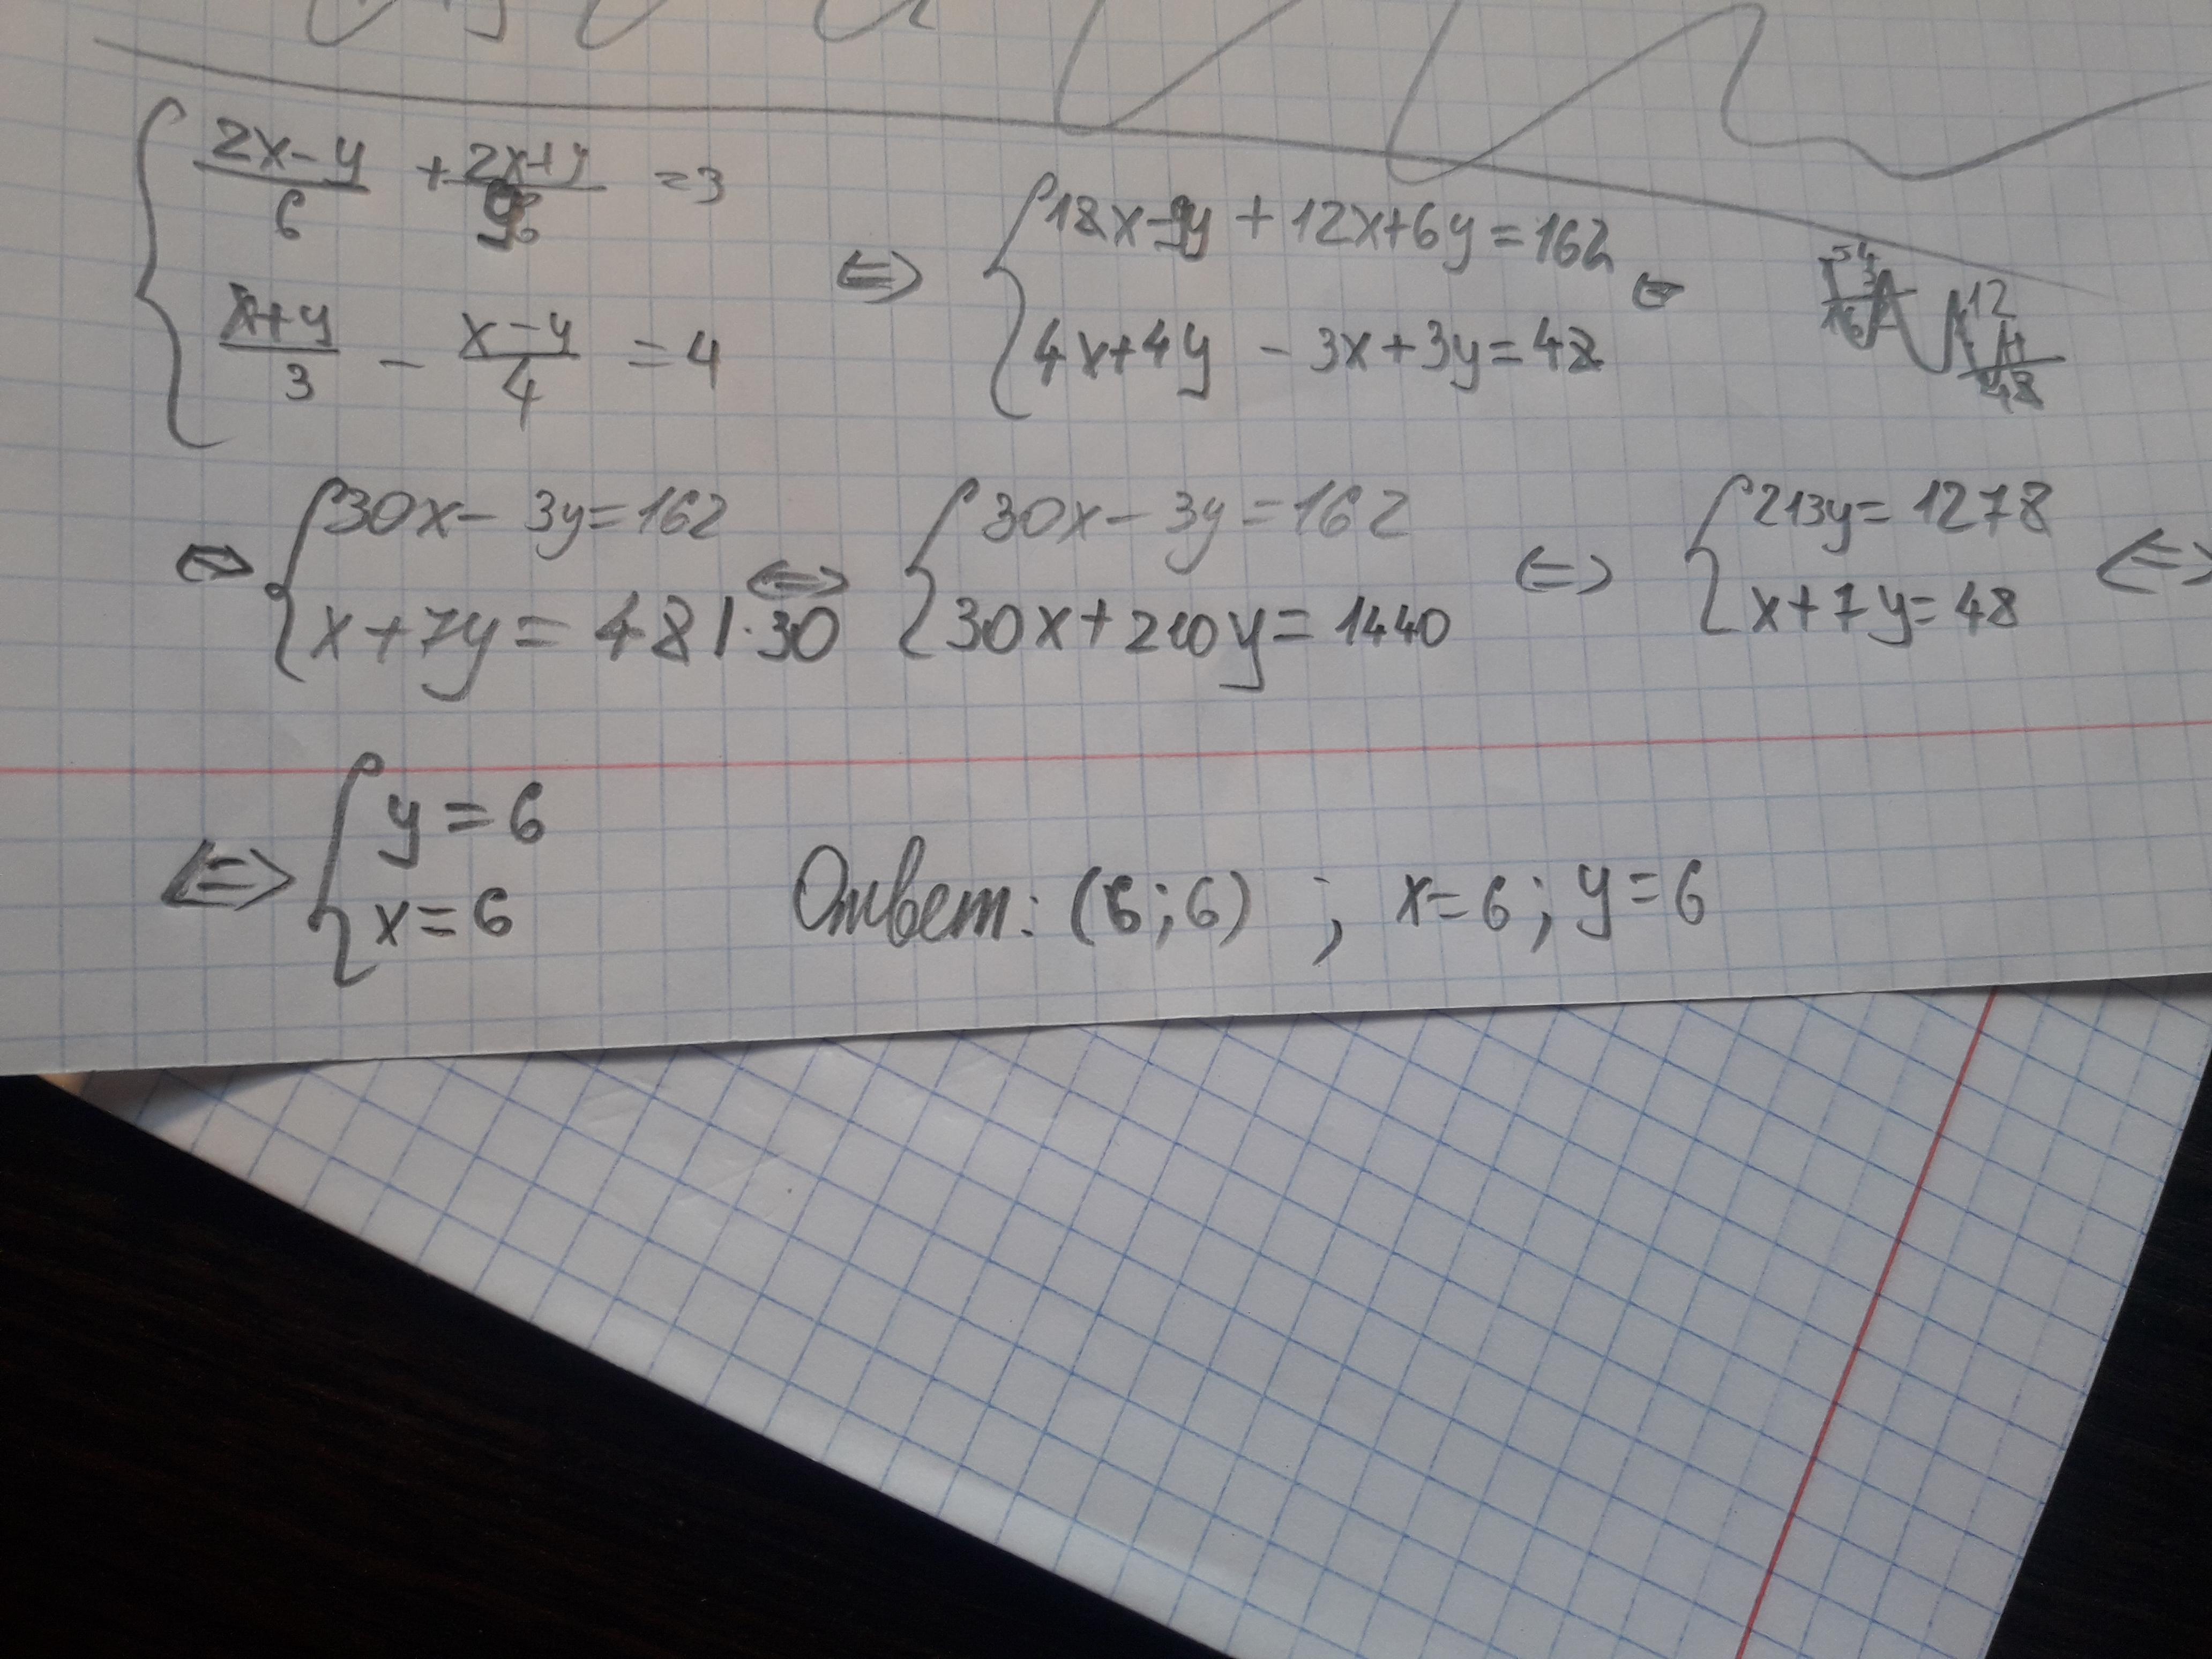 { (2x-y)/6 + (2x+y)/9 = 3
(x+y)/3 - (x-y)/4 = 4
⇔ { 18x-9y + 12x+6y = 162
4x+4y - 3x+3y = 48 ⇔
⇔ { 30x - 3y = 162
x + 7y = 48 | ·30
⇔ { 30x - 3y = 162
30x + 210y = 1440
⇔ { 213y = 1278
x + 7y = 48 ⇔
⇔ { y = 6
x = 6
Ответ: (6; 6) ; x = 6; y = 6